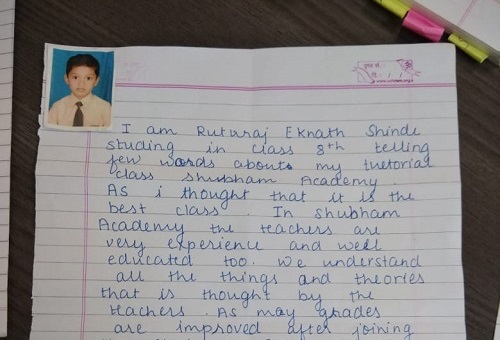 I am Ruturaj Eknath Shinde
studing in class 8th telling
few words about my tuetorial
class shubham Academy.
As i thought that it is the
best class. In shubham
Academy the teachers are
very experience and well
educated too. we understand
all the things and theories
that is thought by the
teachers. As may grades
are improved after joining